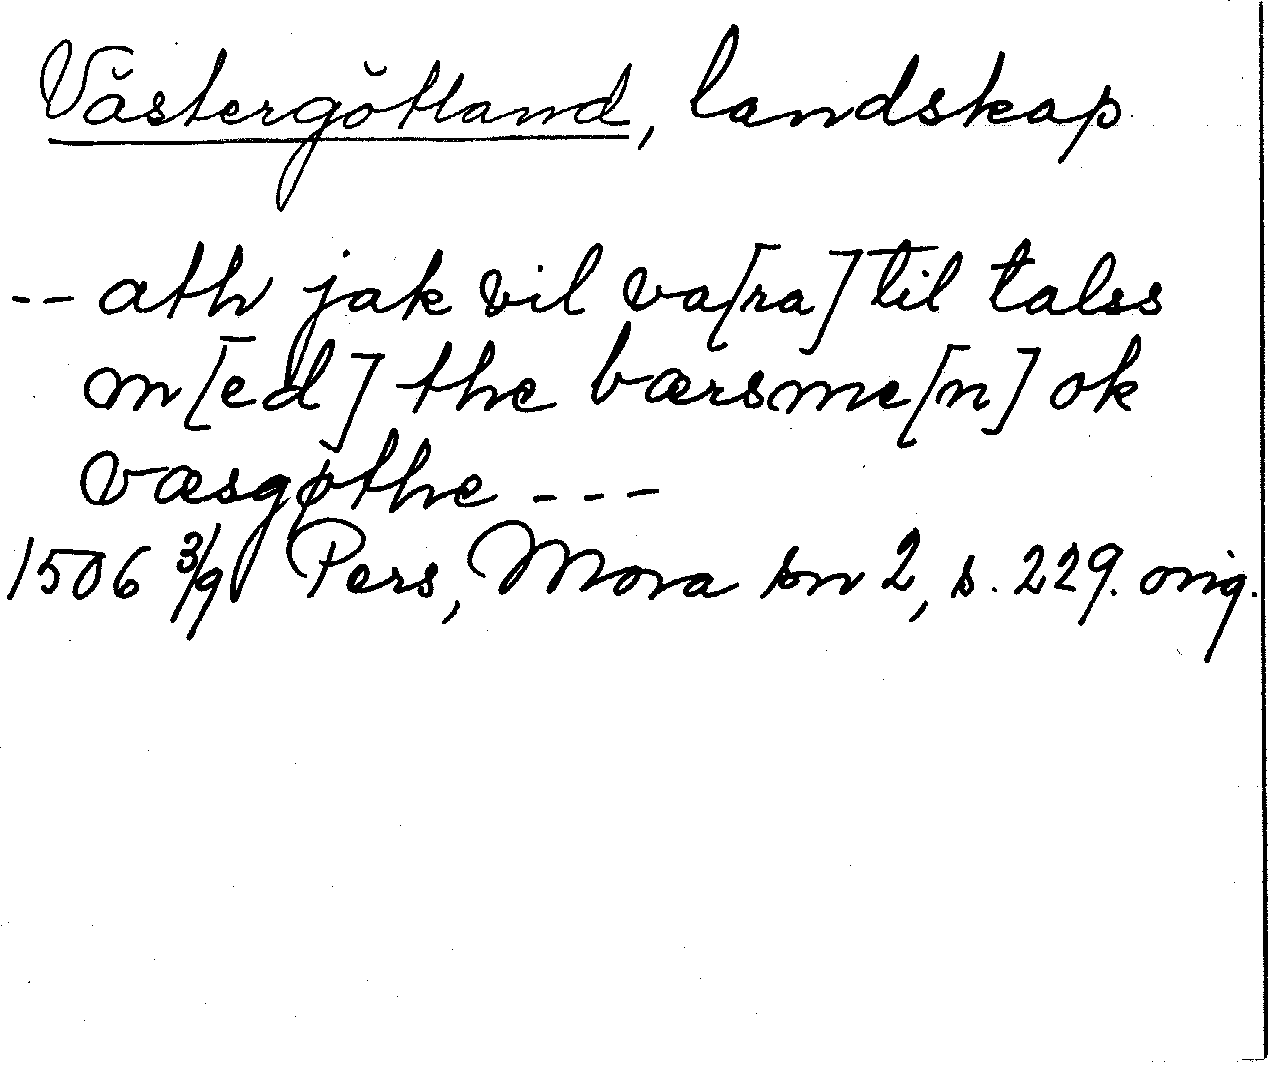 Västergötland, landskap
-- ath jak vil va[ra] til talss
m[ed] the bærsme[n] ok
væsgøthe ---
1506 3/9 Pers, Mora sn 2, s. 229. orig.